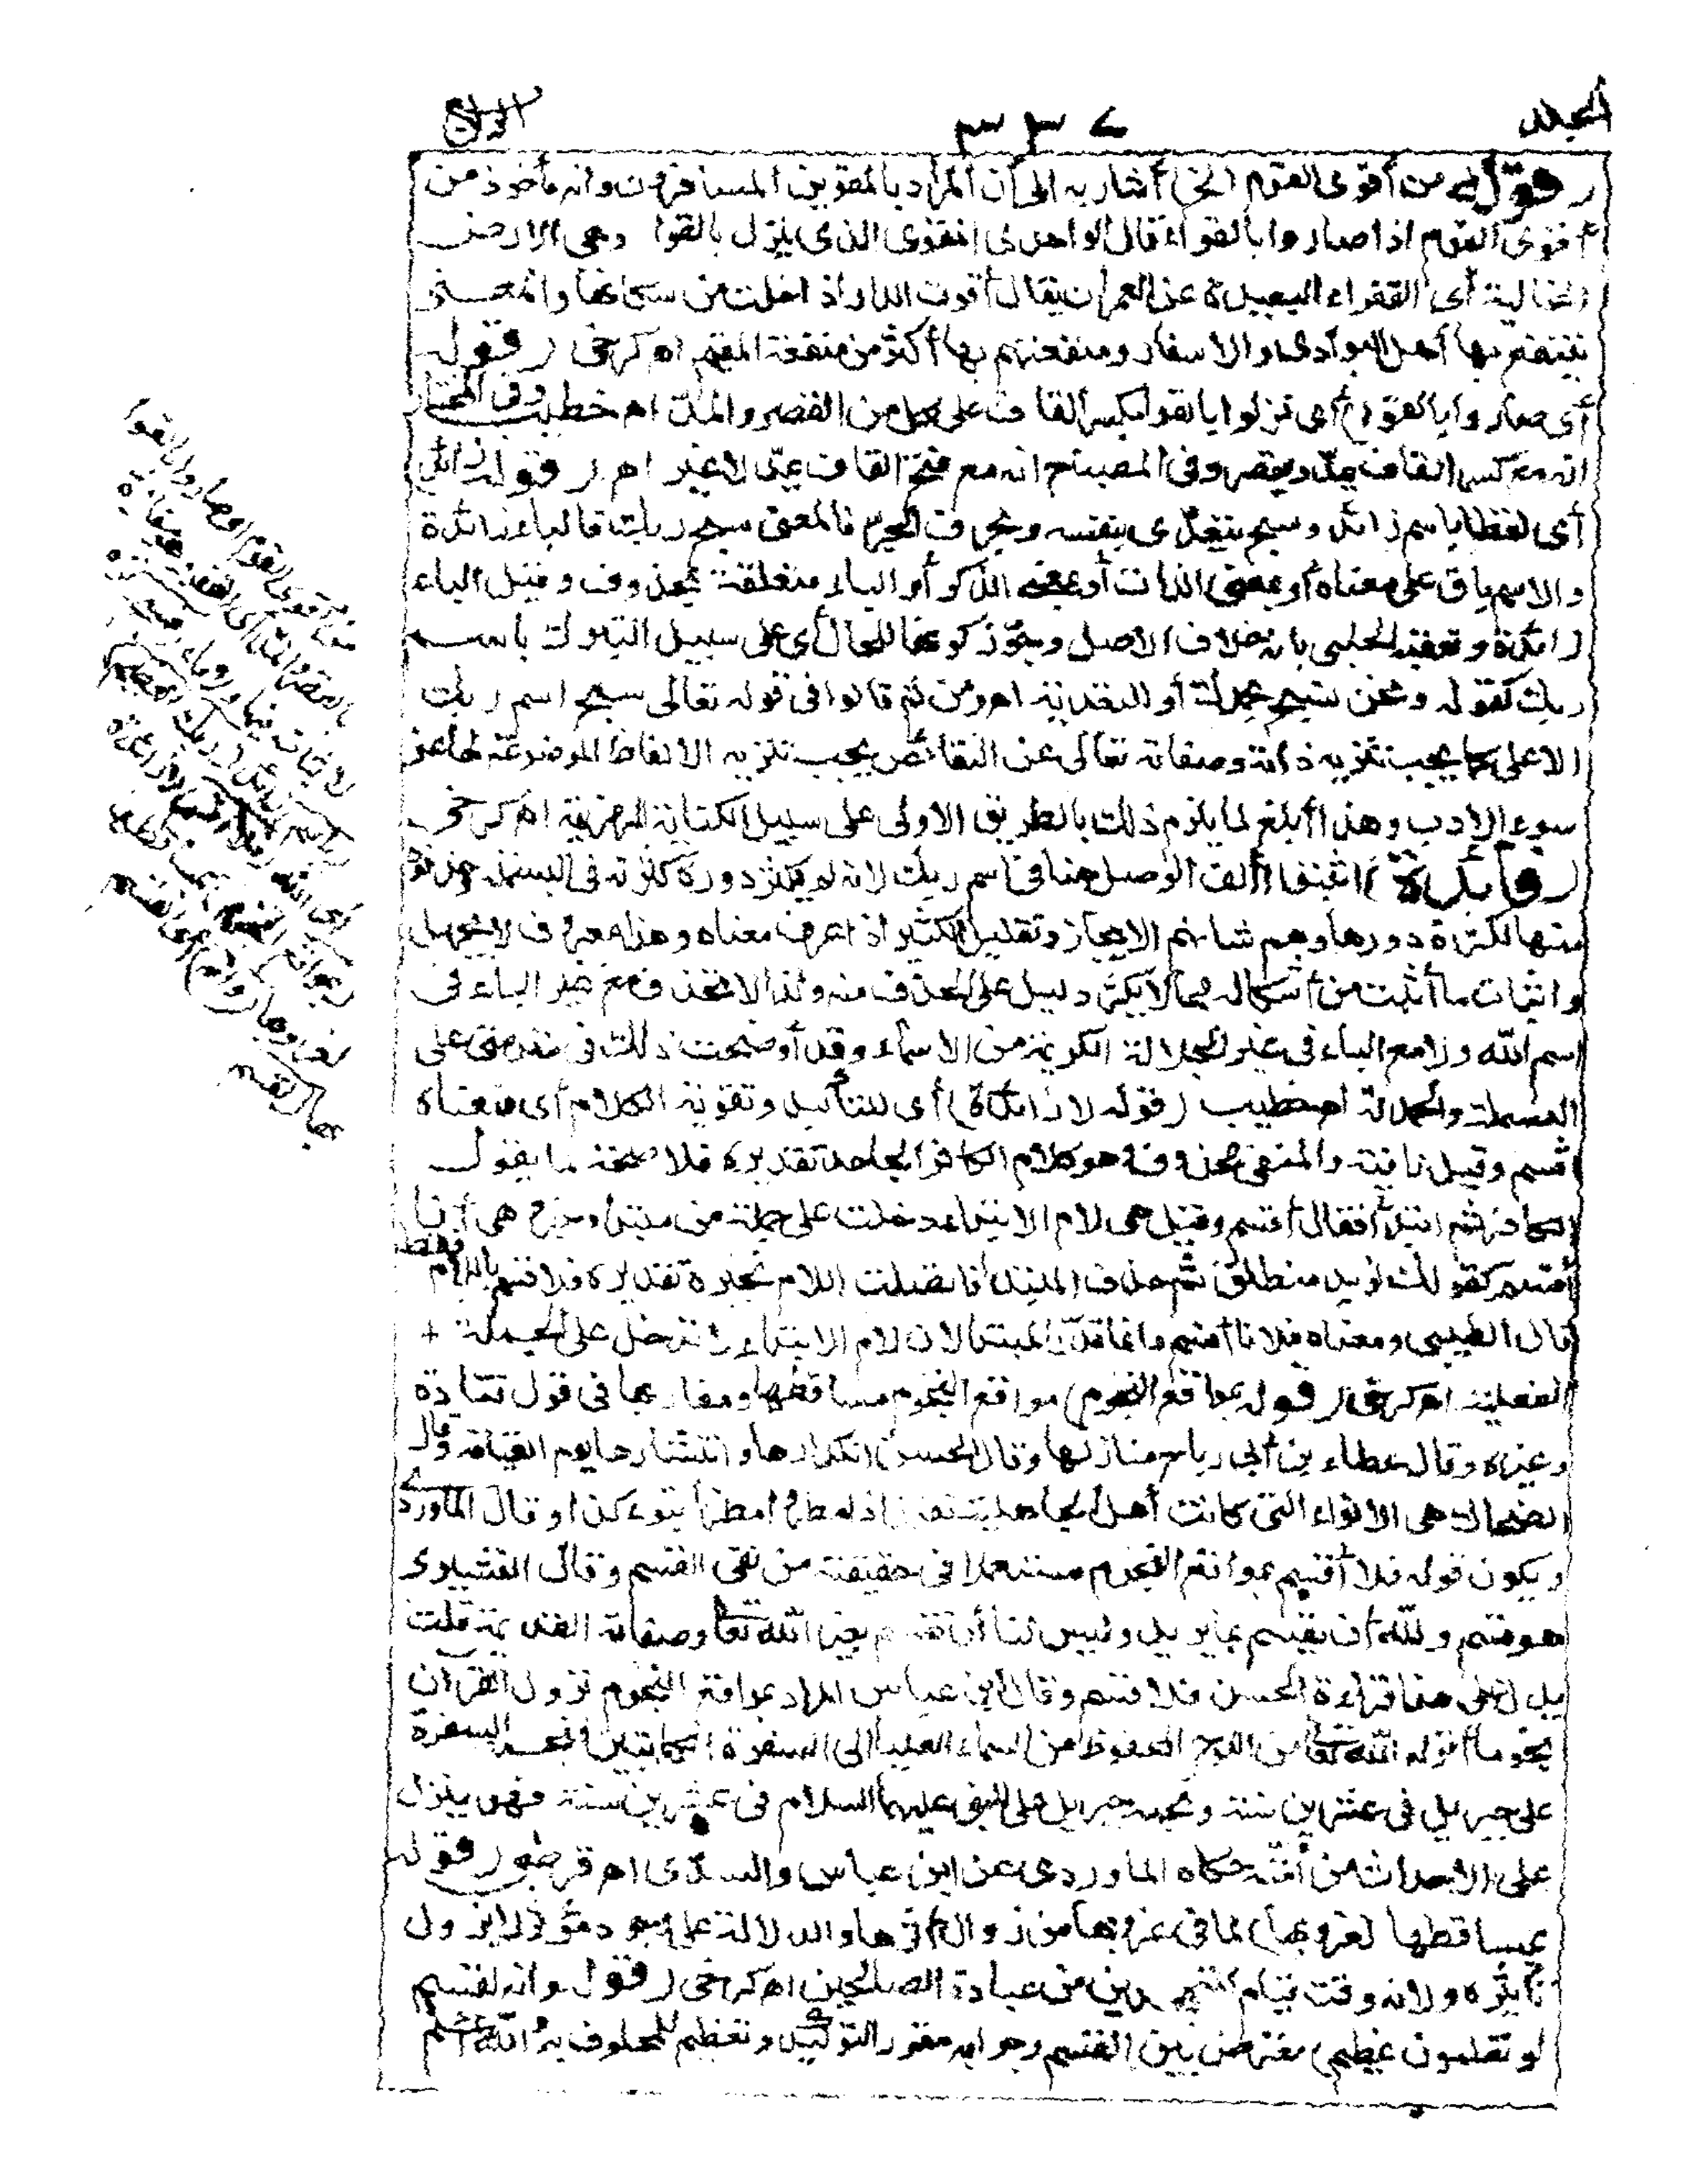 المجلد ٣٣٧ الرابع
(قوله من أقوى القوم الخ) أشار به الى أن المراد بالمقوين المسافرون وانه مأخوذ من
أقوى القوم اذا صاروا بالقواء قال الواحدى المقوى الذى ينزل بالقوا وهى الارض
الخالية أى القفراء البعيدة عن العمران يقال أقوت الدار اذا خلت من سكانها والمعنى
ينتفع بها أهل البوادى والاسفار ومنفعتهم بها أكثر من منفعة المقيم اه كرخى (قوله
أى صاروا بالقوا) أى نزلوا بالقوا بكسر القاف على كل من القصر والمد اه خطيب وفى المختار
انه مع كسر القاف يمد ويقصر وفى المصباح انه مع فتح القاف يمد لاغير اه (قوله زائد)
أى لفظ باسم زائد وسبح يتعدى بنفسه وبحرف الجر فالمعنى سبح ربك فالباء زائدة
والاسم باق على معناه أو بمعنى الذات أو بمعنى الذكر أو الباء متعلقة بمحذوف وقيل الباء
زائدة وتعقبه الحلبى بانه خلاف الاصل وجوز كونها للحال أى على سبيل التبرك باسم
ربك كقوله ونحن نسبح بحمدك أو للتعدية اه ومن ثم قالوا فى قوله تعالى سبح اسم ربك
الاعلى كما يجب تنزيه ذاته وصفاته تعالى عن النقائص يجب تنزيه الالفاظ الموضوعة لها عن
سوء الادب وهذا أبلغ لما يلزم ذلك بالطريق الاولى على سبيل الكناية الرمزية اه كرخى
(فائدة) اثبتوا ألف الوصل هنا فى اسم ربك لانه لم يكثر دوره كثرته فى البسملة حذفوه
منها لكثرة دورها وهم شانهم الايجاز وتقليل الكثير اذا عرف معناه وهذا معروف لا يجهل
واثبات ما أثبت من أشكاله مما لا يكثر دليل على الحذف منه ولذا لا تحذف مع غير الباء فى
اسم الله ولا مع الباء فى غير الجلالة الكريمة من الاسماء وقد أوضحت ذلك فى مقدمتى على
البسملة والحمدلة اه خطيب (قوله لا زائدة) أى للتأكيد وتقوية الكلام أى معناه
اقسم وقيل نافية والمنفى محذوف وهو كلام الكافر الجاحد تقديره فلا صحة لما يقول
الكافر ثم ابتدأ فقال أقسم وقيل هى لام الابتداء دخلت على جملة من مبتدأ وخبر هى أنا
أقسم كقولك لزيد منطلق ثم حذف المبتدأ فاتصلت اللام بخبره تقديره فلاقسم باللام فقط
قال الطيبى ومعناه فلانا أقسم وانما قدر المبتدأ لان لام الابتداء لا تدخل على الجملة
الفعلية اه كرخى (قوله بمواقع النجوم) مواقع النجوم مساقطها ومغاربها فى قول قتادة
وغيره وقال عطاء بن أبى رباح منازلها وقال الحسن انكدارها وانتثارها يوم القيامة وقال
الضحاك هى الانواء التى كانت أهل الجاهلية تقول اذا مطروا مطرنا بنوء كذا وقال الماوردى
ويكون قوله فلا أقسم بمواقع النجوم مستعملا فى حقيقته من نفى القسم وقال القشيرى
هو قسم ولله أن يقسم بما يريد وليس لنا أن نقسم بغير الله تعالى وصفاته القديمة قلت
يدل على هذا قراءة الحسن فلاقسم وقال ابن عباس المراد بمواقع النجوم نزول القرآن
نجوما أنزله الله تعالى من اللوح المحفوظ من السماء العليا الى السفرة الكاتبين فنجمه السفرة
على جبريل فى عشرين سنة ونجمه جبريل على النبى عليهما السلام فى عشرين سنة فهو ينزل
على الاحداث من أمته حكاه الماوردى عن ابن عباس والسدى اه قرطبى (قوله
بمساقطها لغروبها) لما فى غروبها من زوال أثرها والدلالة على وجود مؤثر لا يزول
تأثيره ولانه وقت قيام المتهجدين من عبادة الصالحين اه كرخى (قوله وانه لقسم
لو تعلمون عظيم) معترض بين القسم وجوابه مقرر للتوكيد وتعظيم للمحلوف به الله أعلم